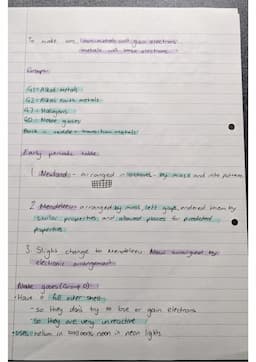 To make ions
Non-metals will gain electrons
metals will lose electrons
Groups
G1 = Alkali metals
G2 = Alkali earth metals
G7 = Halogens
G0 = Noble gases
Block in middle = transition metals
Early periodic table
1. Newlands - arranged in by mass and into
2. Mendeleev - arranged by mass, left gaps, ordered them by
similar properties and allowed places for predicted
properties
3. Slight change to Mendeleev: Now arranged by
electronic arrangement
Noble gases (Group 0)
• Have a full outer shell
- so they don't try to lose or gain electrons
- so they are very unreactive
• USES: helium in balloons neon in neon lights